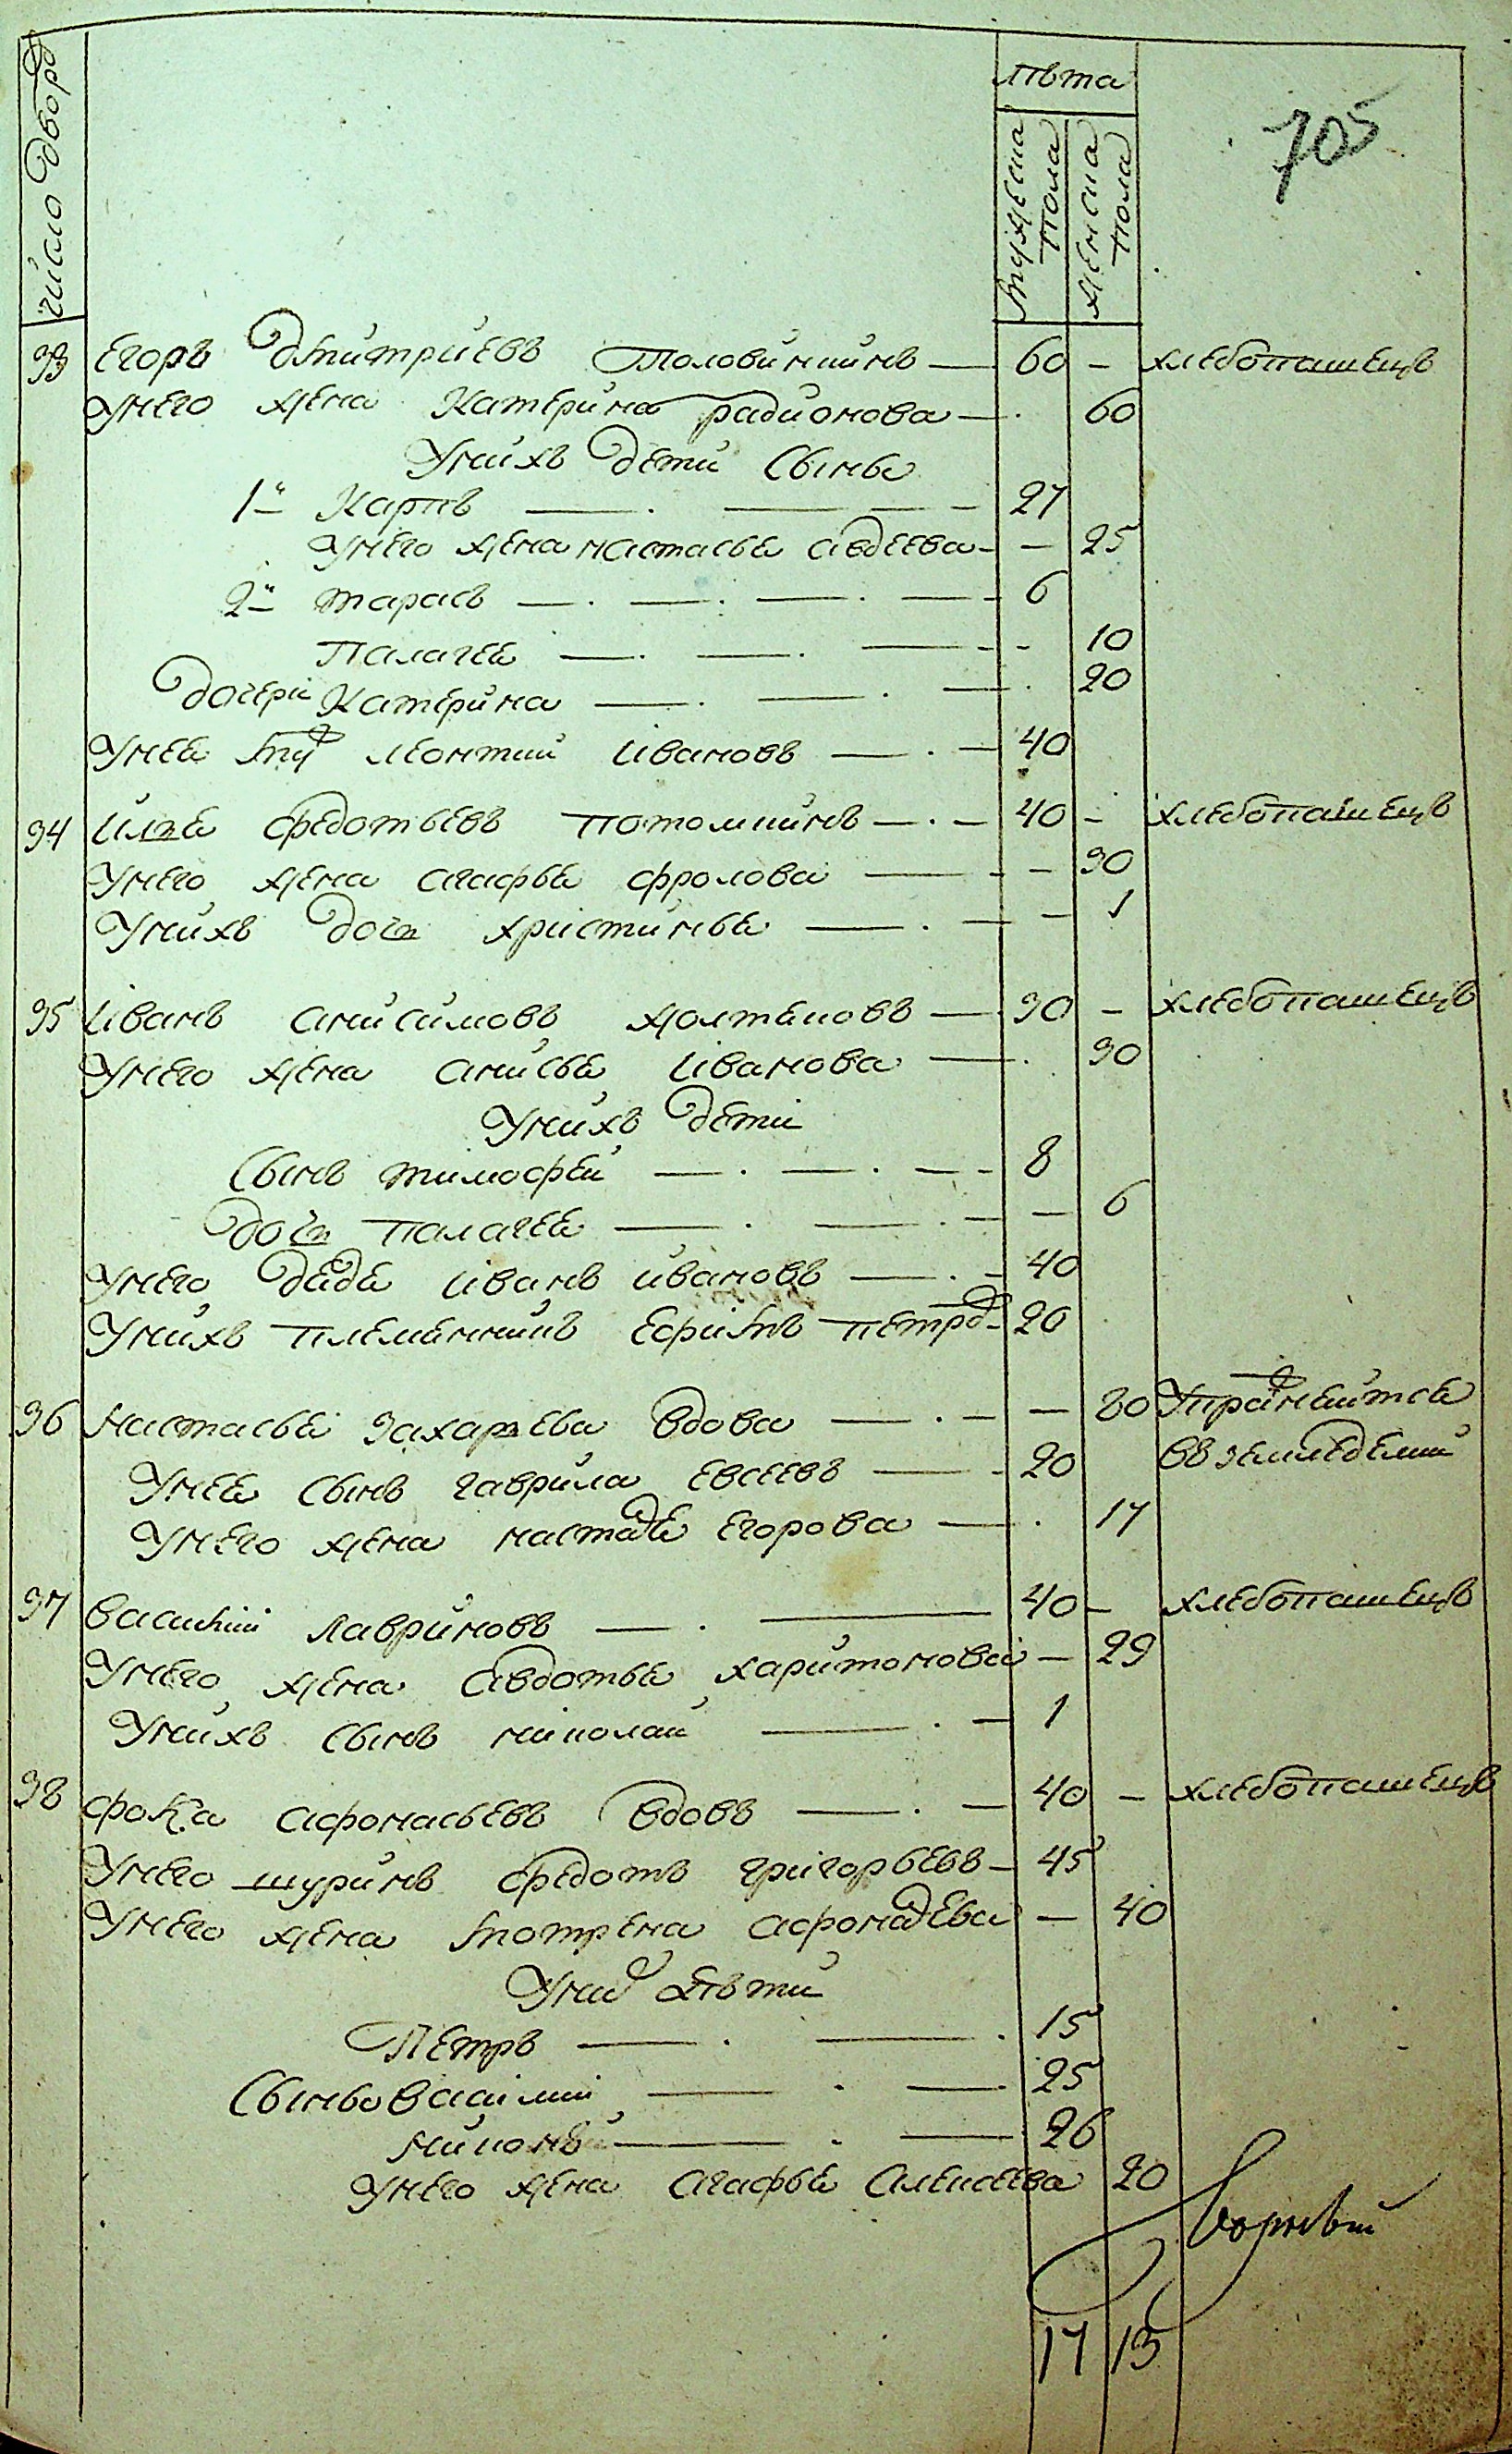 число двор
лѣта
мужеска пола
женска пола
705
33 Егоръ Дмитриевъ Половинкинъ 60 - хлебопашецъ
Унего жена Катерина радионова 60
Унихъ дети Сынве
1й Карпъ 27
Унего жена настасья авдеева - 25
2й тарасъ 6
Палагея - 10
дочери Катерина 20
Унея му леонтий Ивановъ 40
34 Илья Федотьевъ потомкинъ 40 - хлебопашецъ
Унего жена агафья фролова - 30
Унихъ дочь христинья - 1
35 Иванъ анисимовъ жолтяковъ 30 - хлебопашецъ
Унего жена анисья Иванова 30
Унихъ дети
Сынъ тимофей 8
дочь палагея - 6
Унего дядя Иванъ ивановъ 40
Унихъ племянникъ Ефимъ петро 20
36 Настасья захарьева вдова - 80 Упражнеитса
Унея сынъ гаврила евсеевъ 20 въземледелии
Унего жена настася Егорова 17
37 Василий Лавриновъ 40 - хлебопашецъ
Унего жена авдотья харитонова - 29
Унихъ сынъ николай 1
38 фока афонасьевъ вдовъ 40 - хлебопашецъ
Унего шуринъ федотъ григорьевъ 45
Унего жена мотрена афонасева - 40
Уних дѣти
Петръ 15
Сынве Василий 25
никонъ 26
Унего жена агафья алексеева 20
17 15